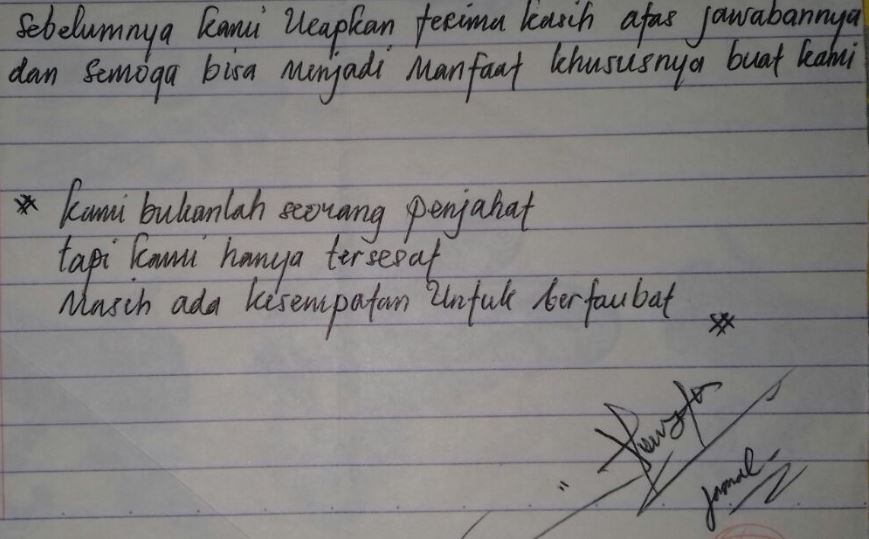 Sebelumnya kami Ucapkan terima kasih atas jawabannya
dan Semoga bisa Menjadi Manfaat khususnya buat kami
* kami bukanlah seorang penjahat
tapi kami hanya tersesat
Masih ada kesempatan Untuk bertaubat
*
Jamal